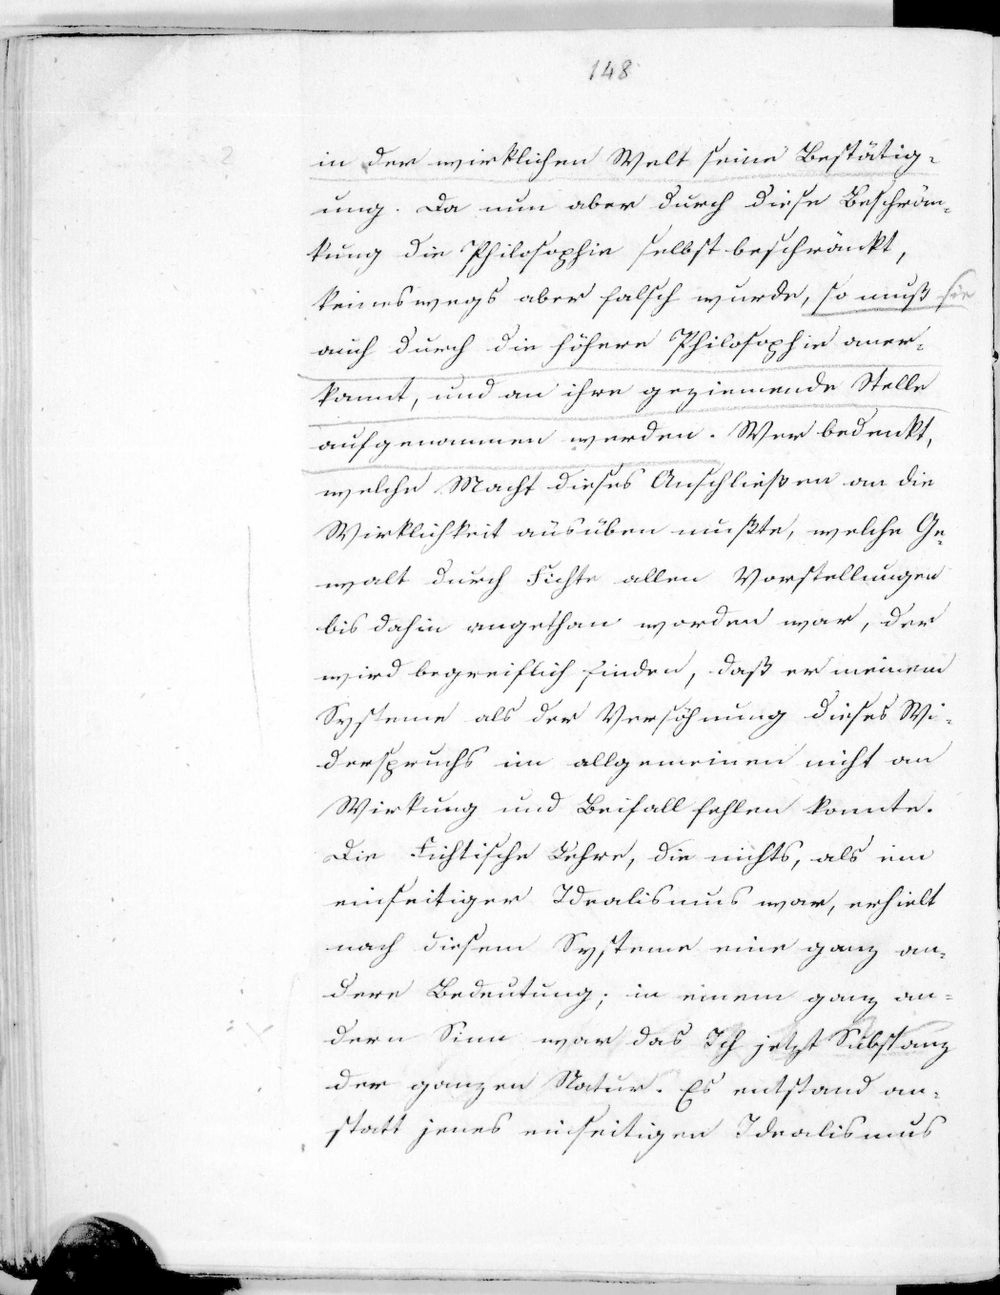 148
in der wirklichen Welt seine Bestätig-
ung. Da nun aber durch diese Beschrän-
kung die Philosophie selbst beschränkt,
keineswegs aber falsch wurde, so muß sie
auch durch die höhere Philosophie aner-
kannt, und an ihre geziemende Stelle
aufgenommen werden. Wer bedenkt,
welche Macht dieses Anschließen an die
Wirklichkeit ausüben mußte, welche Ge-
walt durch Fichte allen Vorstellungen
bis dahin angethan worden war, der
wird begreiflich finden, daß es meinem
Systeme als der Versöhnung dieses Wi-
derspruchs im allgemeinen nicht an
Wirkung und Beifall fehlen konnte.
Die Fichtische Lehre, die nichts, als ein
einseitiger Idealismus war, erhielt
nach diesem Systeme eine ganz an-
dere Bedeutung; in einem ganz an-
dern Sinn war das Ich jetzt Substanz
der ganzen Natur. Es entstand an-
statt jenes einseitigen Idealismus